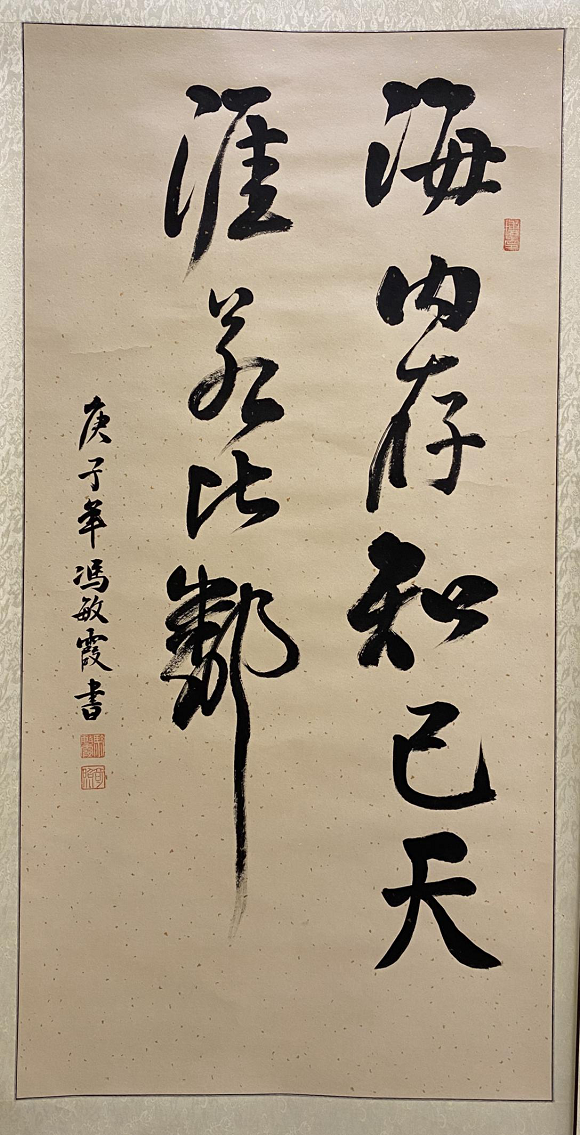 海内存知己天
涯若比鄰
庚子年馮敏霞書